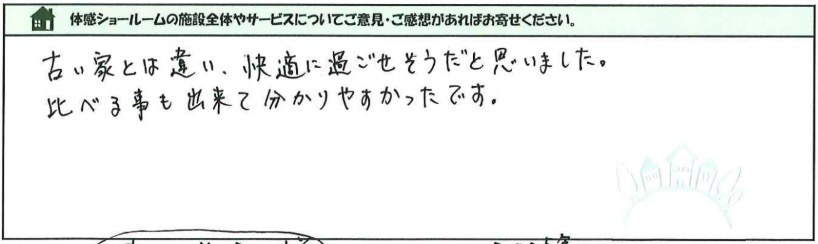 体感ショールームの施設全体やサービスについてご意見・ご感想があればお寄せください。
古い家とは違い、快適に過ごせそうだと思いました。
比べる事も出来て分かりやすかったです。